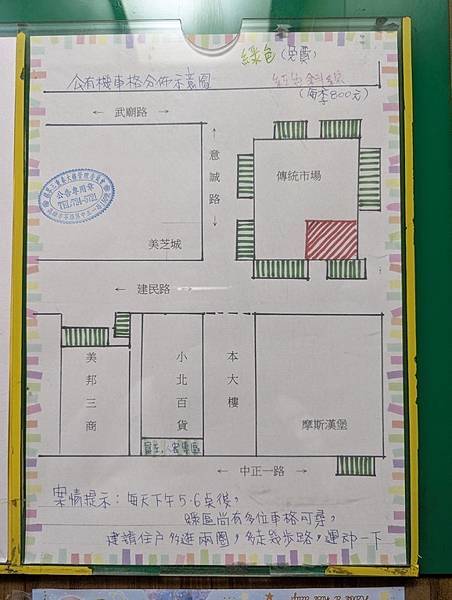 綠色(免費)
公有機車格分佈示意圖
紅色斜線
(每季800元)
← 武廟路 →
← 意誠路 →
傳統市場
公告專用章
TEL:751-5721
美芝城
← 建民路
美邦三商
小北百貨
本大樓
摩斯漢堡
← 中正一路 →
案情提示:每天下午5.6点後,
綠區尚有多位車格可尋,
建請住戶多逛兩圈,多走幾步路,運动一下